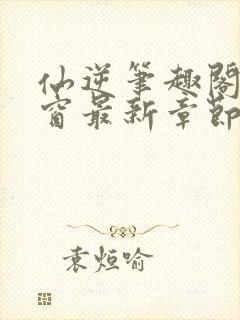 仙逆笔趣阁
窗最新章節
袁烜喻